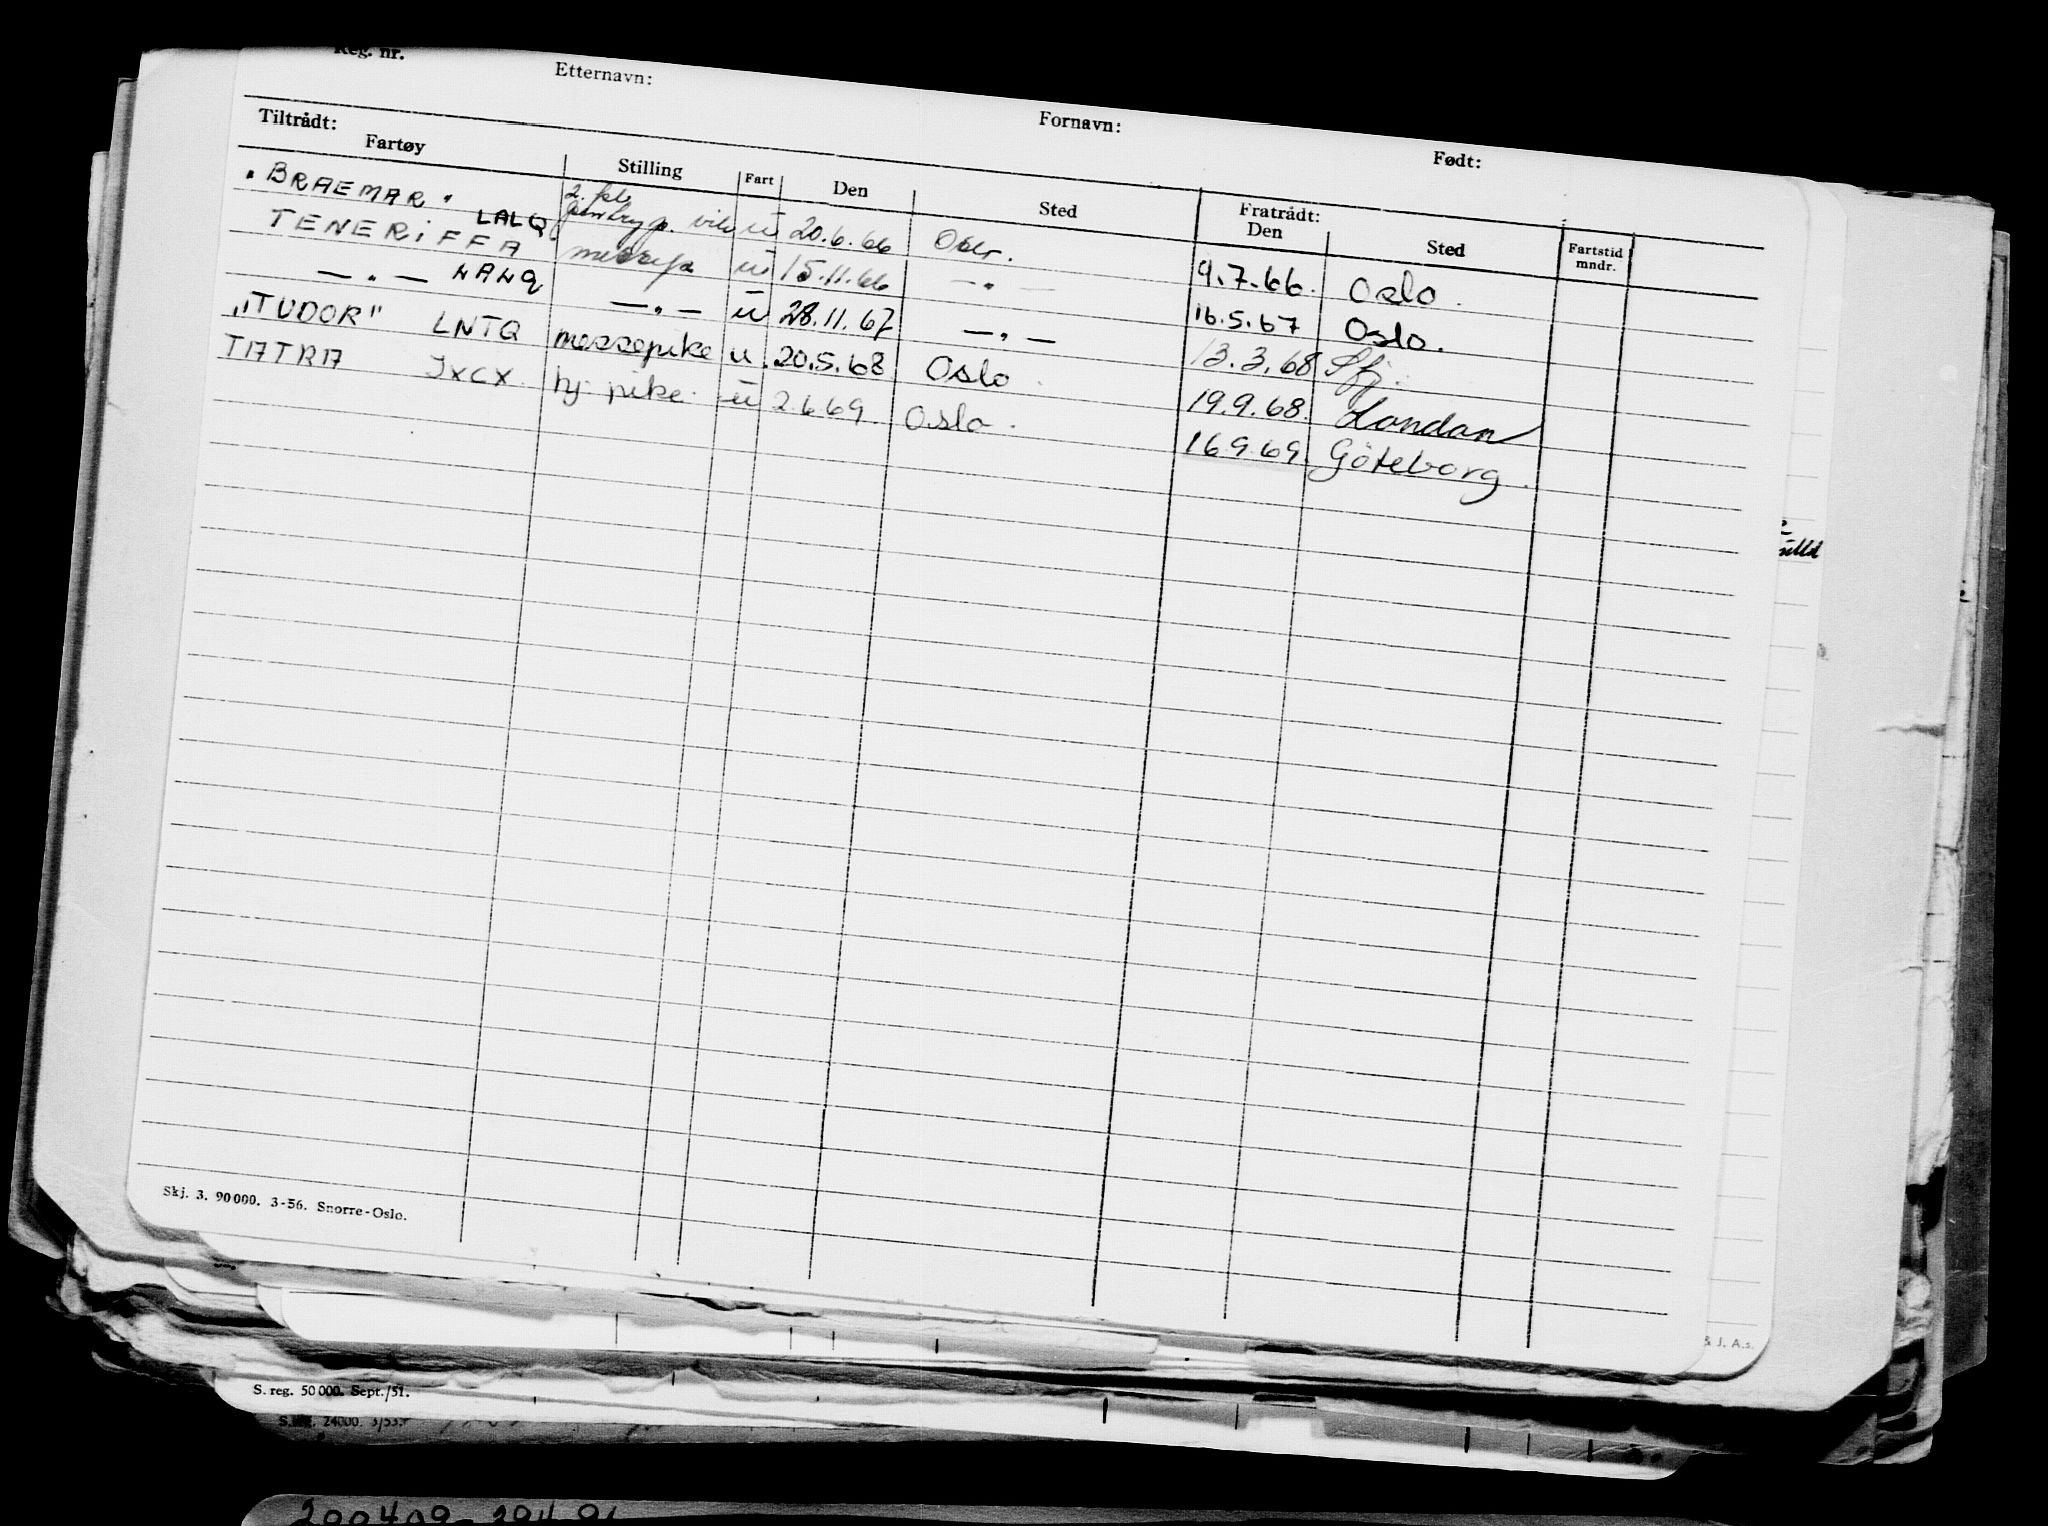 Reg. nr. Etternavn: Fornavn: Født:
Tiltrådt: Fratrådt:
Fartøy Stilling Fart Den Sted Den Sted Fartstid mndr.
"BRAEMAR" LALQ 2. kl. pantryp. vik u 20.6.66 Oslo. 9.7.66. Oslo.
TENERiFFA messep u 15.11.66 — " — 16.5.67 Oslo.
— " — LALQ — " — u 28.11.67 — " — 13.3.68 Sfj.
"TUDOR" LNTQ messepike u. 20.5.68 Oslo. 19.9.68. London
TATRA JXCX. hj. pike. u 2.6.69. Oslo. 16.9.69. Göteborg.
Skj. 3. 90000. 3-56. Snorre-Oslo.
& J. A.s.
S. reg. 50000. Sept./51.
S. reg. 24000. 3/53.